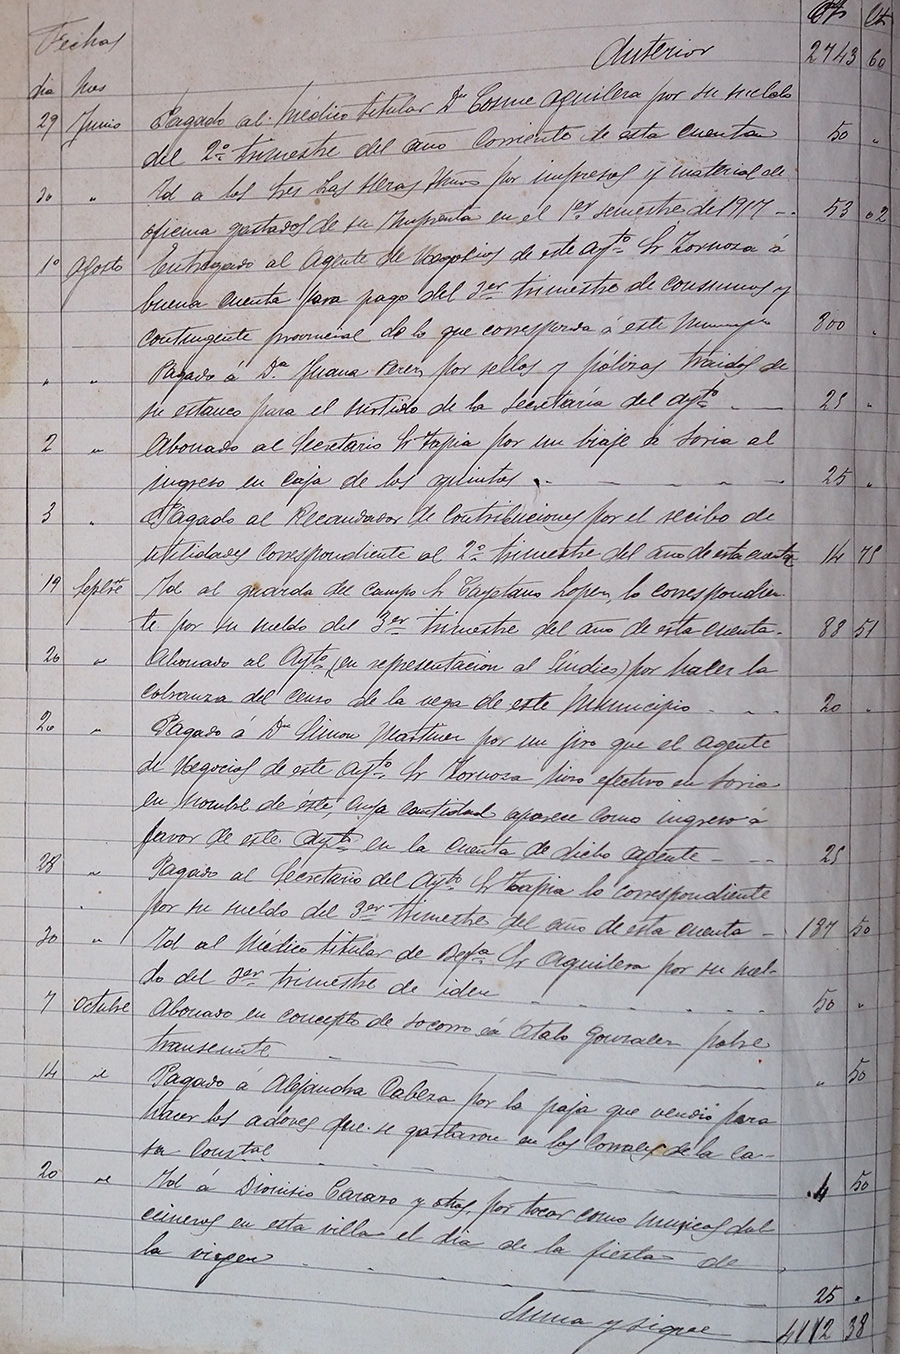 Fechas Pts Cts
Anterior 2743 60
dia mes
29 Junio Pagado al Medico titular Dn Cosme Aguilera por su sueldo
del 2º trimestre del año corriente de esta cuenta 50 "
30 " Id a los tres Las Heras Hnos por impresos y material de
oficina gastados de su Imprenta en el 1er semestre de 1917 -- 53 02
1º Agosto Entregado al Agente de Negocios de este Aytº Sr Zornoza á
buena cuenta para pago del 3er trimestre de consumos y
contingente provincial de lo que corresponda á este Municipio 300 "
" " Pagado á Dª Juana Perez por sellos y pólizas traidos de
su estanco para el surtido de la Secretaría del Aytº - — 25 "
2 " Abonado al Secretario Sr Tapia por un biaje á Soria al
ingreso en Caja de los quintos - - - - - 25 "
3 " Pagado al Recaudador de Contribuciones por el recibo de
utilidades correspondiente al 2º trimestre del año de esta cuenta 14 75
19 Septbre Id al guarda del campo Sr Cayetano Lopez, lo correspondien
te por su sueldo del 3er trimestre del año de esta cuenta - 88 51
20 " Abonado al Aytº (en representacion al Sindico) por hacer la
cobranza del censo de la vega de este Municipio - - - 20 "
20 " Pagado á Dn Simon Martinez por un jiro que el agente
de Negocios de este Aytº Sr Zornoza hizo efectivo en Soria
en nombre de éste, cuya cantidad aparece como ingreso á
favor de este Aytº en la cuenta de dicho agente - -- 25
28 " Pagado al Secretario del Aytº Sr Tapia lo correspondiente
por su sueldo del 3er trimestre del año de esta cuenta - 187 50
30 " Id al Médico titular de Sr Aguilera por su suel-
do del 3er trimestre de iden - - - - - 50 "
7 Octubre Abonado en concepto de socorro á Gonzalez pobre
transeunte - — — " 50
14 " Pagado á Alejandra Cabeza por la paja que vendió para
hacer los adoves que se gastaron en los Corrales de la ca-
sa 4 50
20 " Id á Dionisio Carazo y otros, por tocar como musicos dul
cineros en esta villa el dia de la fiesta de
la virgen - - - - - 25 "
Suma y sigue — 4112 38